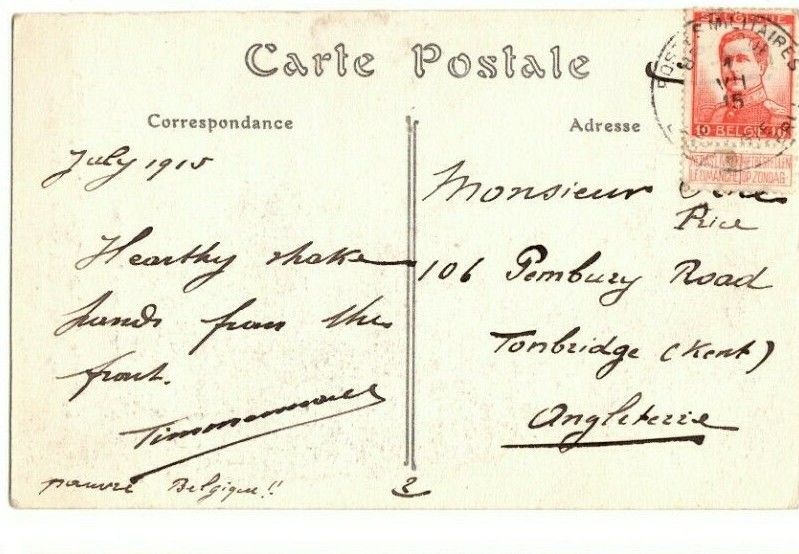 Carte Postale
Correspondance
Adresse
July 1915
Hearthy shake
hands from the
front.
pauvre Belgique!!
2
Monsieur
Price
106 Pembury Road
Tonbridge (Kent)
Angleterre
POSTES MILITAIRES
1
VII
15
10 BELGIE 10
NE PAS LIVRER LE DIMANCHE
NIET BESTELLEN OP ZONDAG